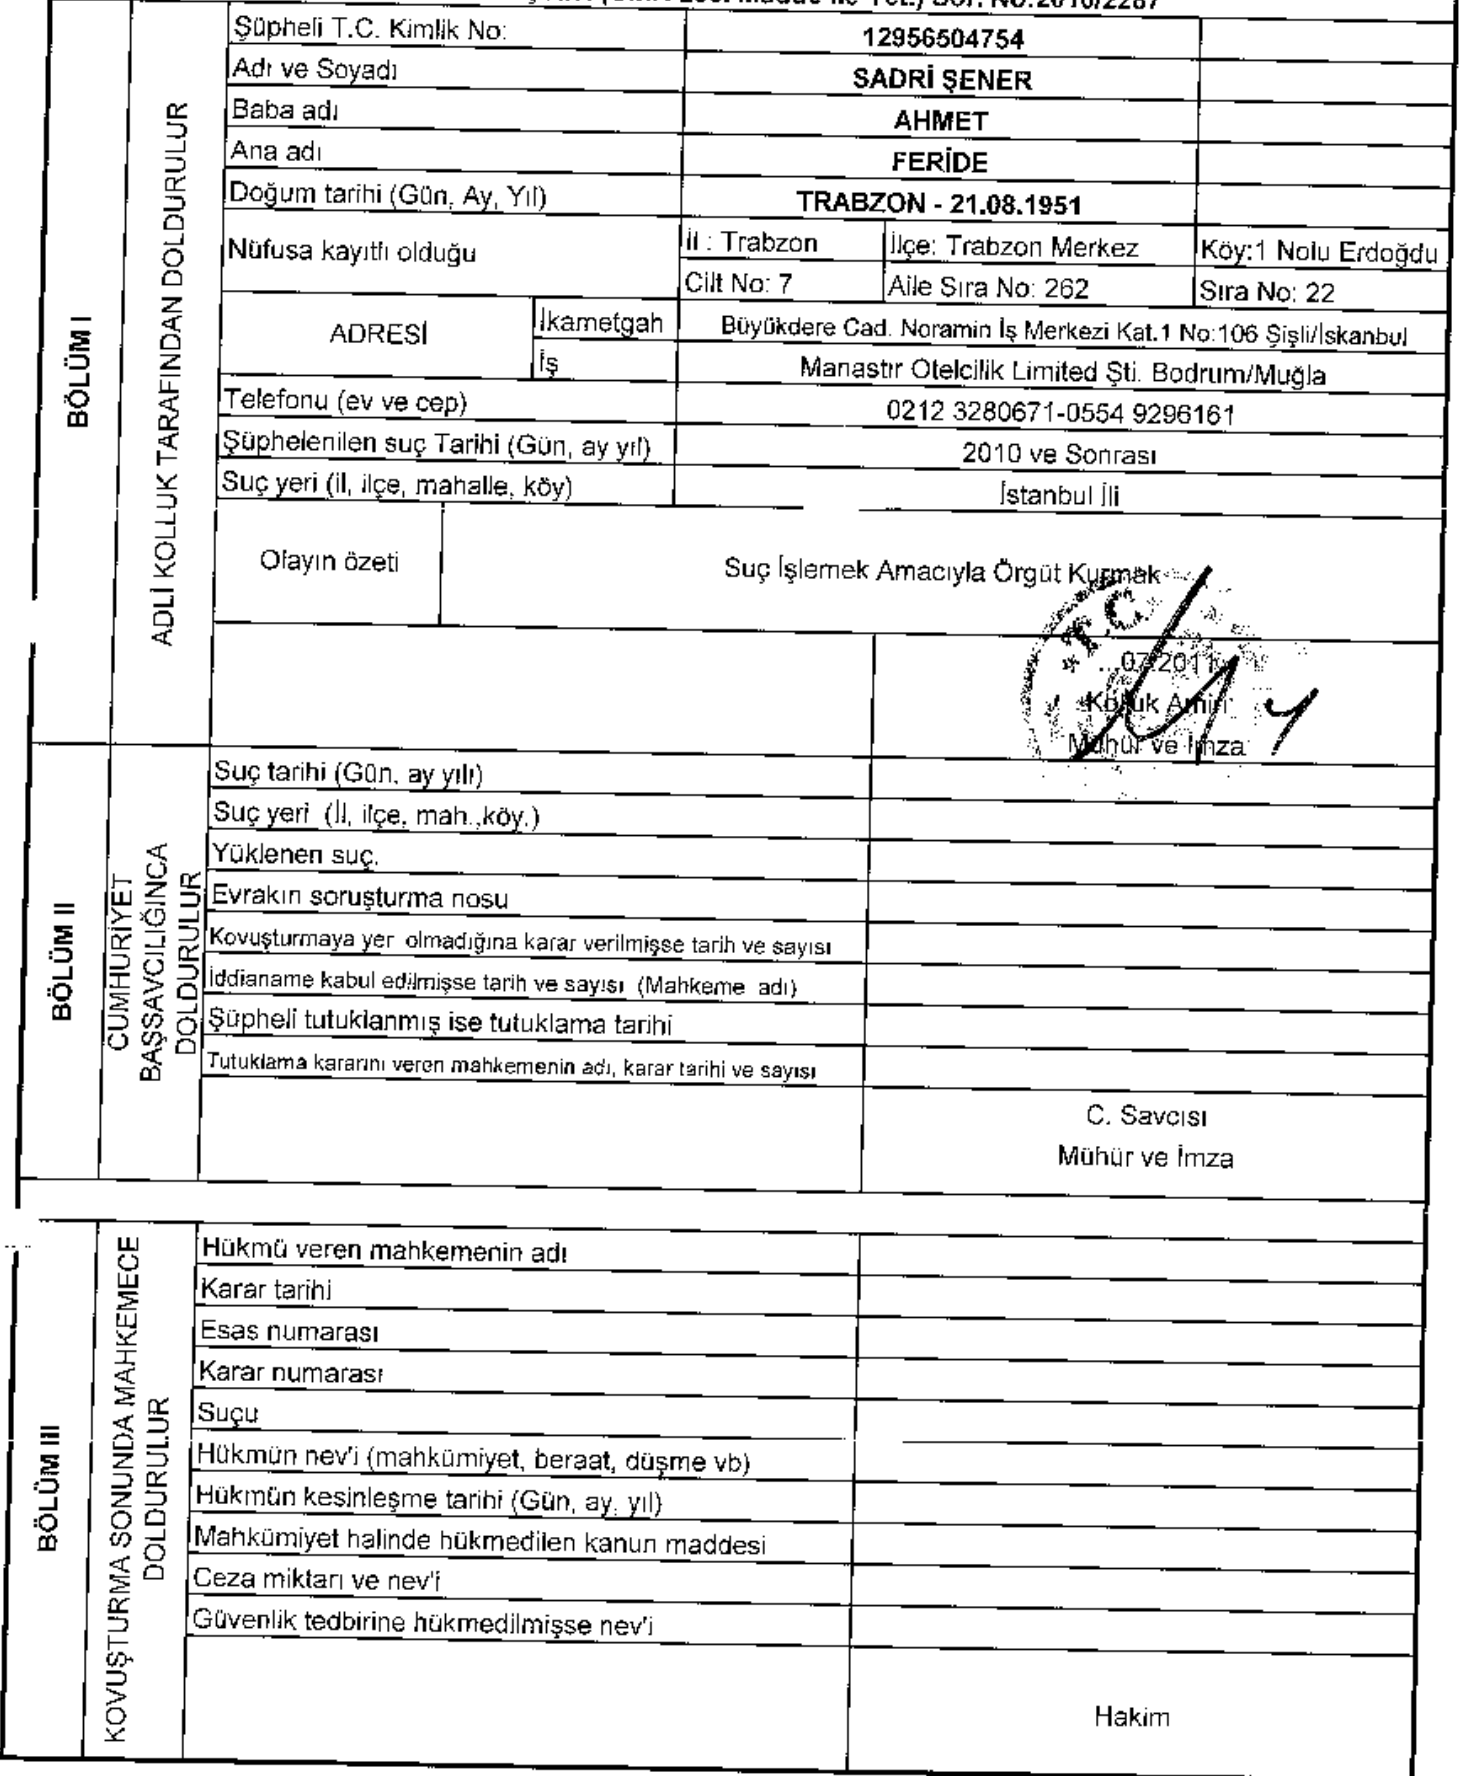 SOR. NO:2010/2287
BÖLÜM I
ADLİ KOLLUK TARAFINDAN DOLDURULUR
Şüpheli T.C. Kimlik No: 12956504754
Adı ve Soyadı SADRİ ŞENER
Baba adı AHMET
Ana adı FERİDE
Doğum tarihi (Gün, Ay, Yıl) TRABZON - 21.08.1951
Nüfusa kayıtlı olduğu
İl : Trabzon İlçe: Trabzon Merkez Köy:1 Nolu Erdoğdu
Cilt No: 7 Aile Sıra No: 262 Sıra No: 22
ADRESİ
İkametgah Büyükdere Cad. Noramin İş Merkezi Kat.1 No:106 Şişli/İskanbul
İş Manastır Otelcilik Limited Şti. Bodrum/Muğla
Telefonu (ev ve cep) 0212 3280671-0554 9296161
Şüphelenilen suç Tarihi (Gün, ay yıl) 2010 ve Sonrası
Suç yeri (il, ilçe, mahalle, köy) İstanbul İli
Olayın özeti Suç İşlemek Amacıyla Örgüt Kurmak
T.C.
...07.2011
Kolluk Amiri
Mühür ve İmza
BÖLÜM II
CUMHURİYET
BAŞSAVCILIĞINCA
DOLDURULUR
Suç tarihi (Gün, ay yılı)
Suç yeri (İl, ilçe, mah.,köy.)
Yüklenen suç.
Evrakın soruşturma nosu
Kovuşturmaya yer olmadığına karar verilmişse tarih ve sayısı
İddianame kabul edilmişse tarih ve sayısı (Mahkeme adı)
Şüpheli tutuklanmış ise tutuklama tarihi
Tutuklama kararını veren mahkemenin adı, karar tarihi ve sayısı
C. Savcısı
Mühür ve İmza
BÖLÜM III
KOVUŞTURMA SONUNDA MAHKEMECE
DOLDURULUR
Hükmü veren mahkemenin adı
Karar tarihi
Esas numarası
Karar numarası
Suçu
Hükmün nev'i (mahkümiyet, beraat, düşme vb)
Hükmün kesinleşme tarihi (Gün, ay, yıl)
Mahkümiyet halinde hükmedilen kanun maddesi
Ceza miktarı ve nev'i
Güvenlik tedbirine hükmedilmişse nev'i
Hakim